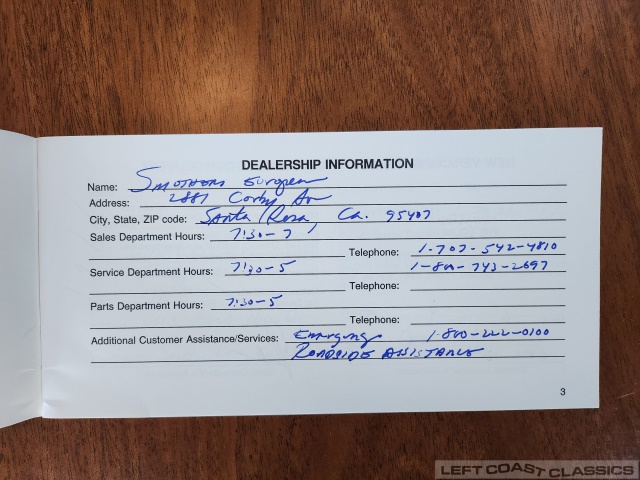 DEALERSHIP INFORMATION
Name: Smothers European
Address: 2881 Corby Av
City, State, ZIP code: Santa Rosa, Ca. 95407
Sales Department Hours: 7:30-7
Telephone: 1-707-542-4810
Service Department Hours: 7:30-5 1-800-743-2697
Telephone:
Parts Department Hours: 7:30-5
Telephone:
Additional Customer Assistance/Services: Emergency 1-800-222-0100
ROADSIDE ASSISTANCE
3
LEFT COAST CLASSICS